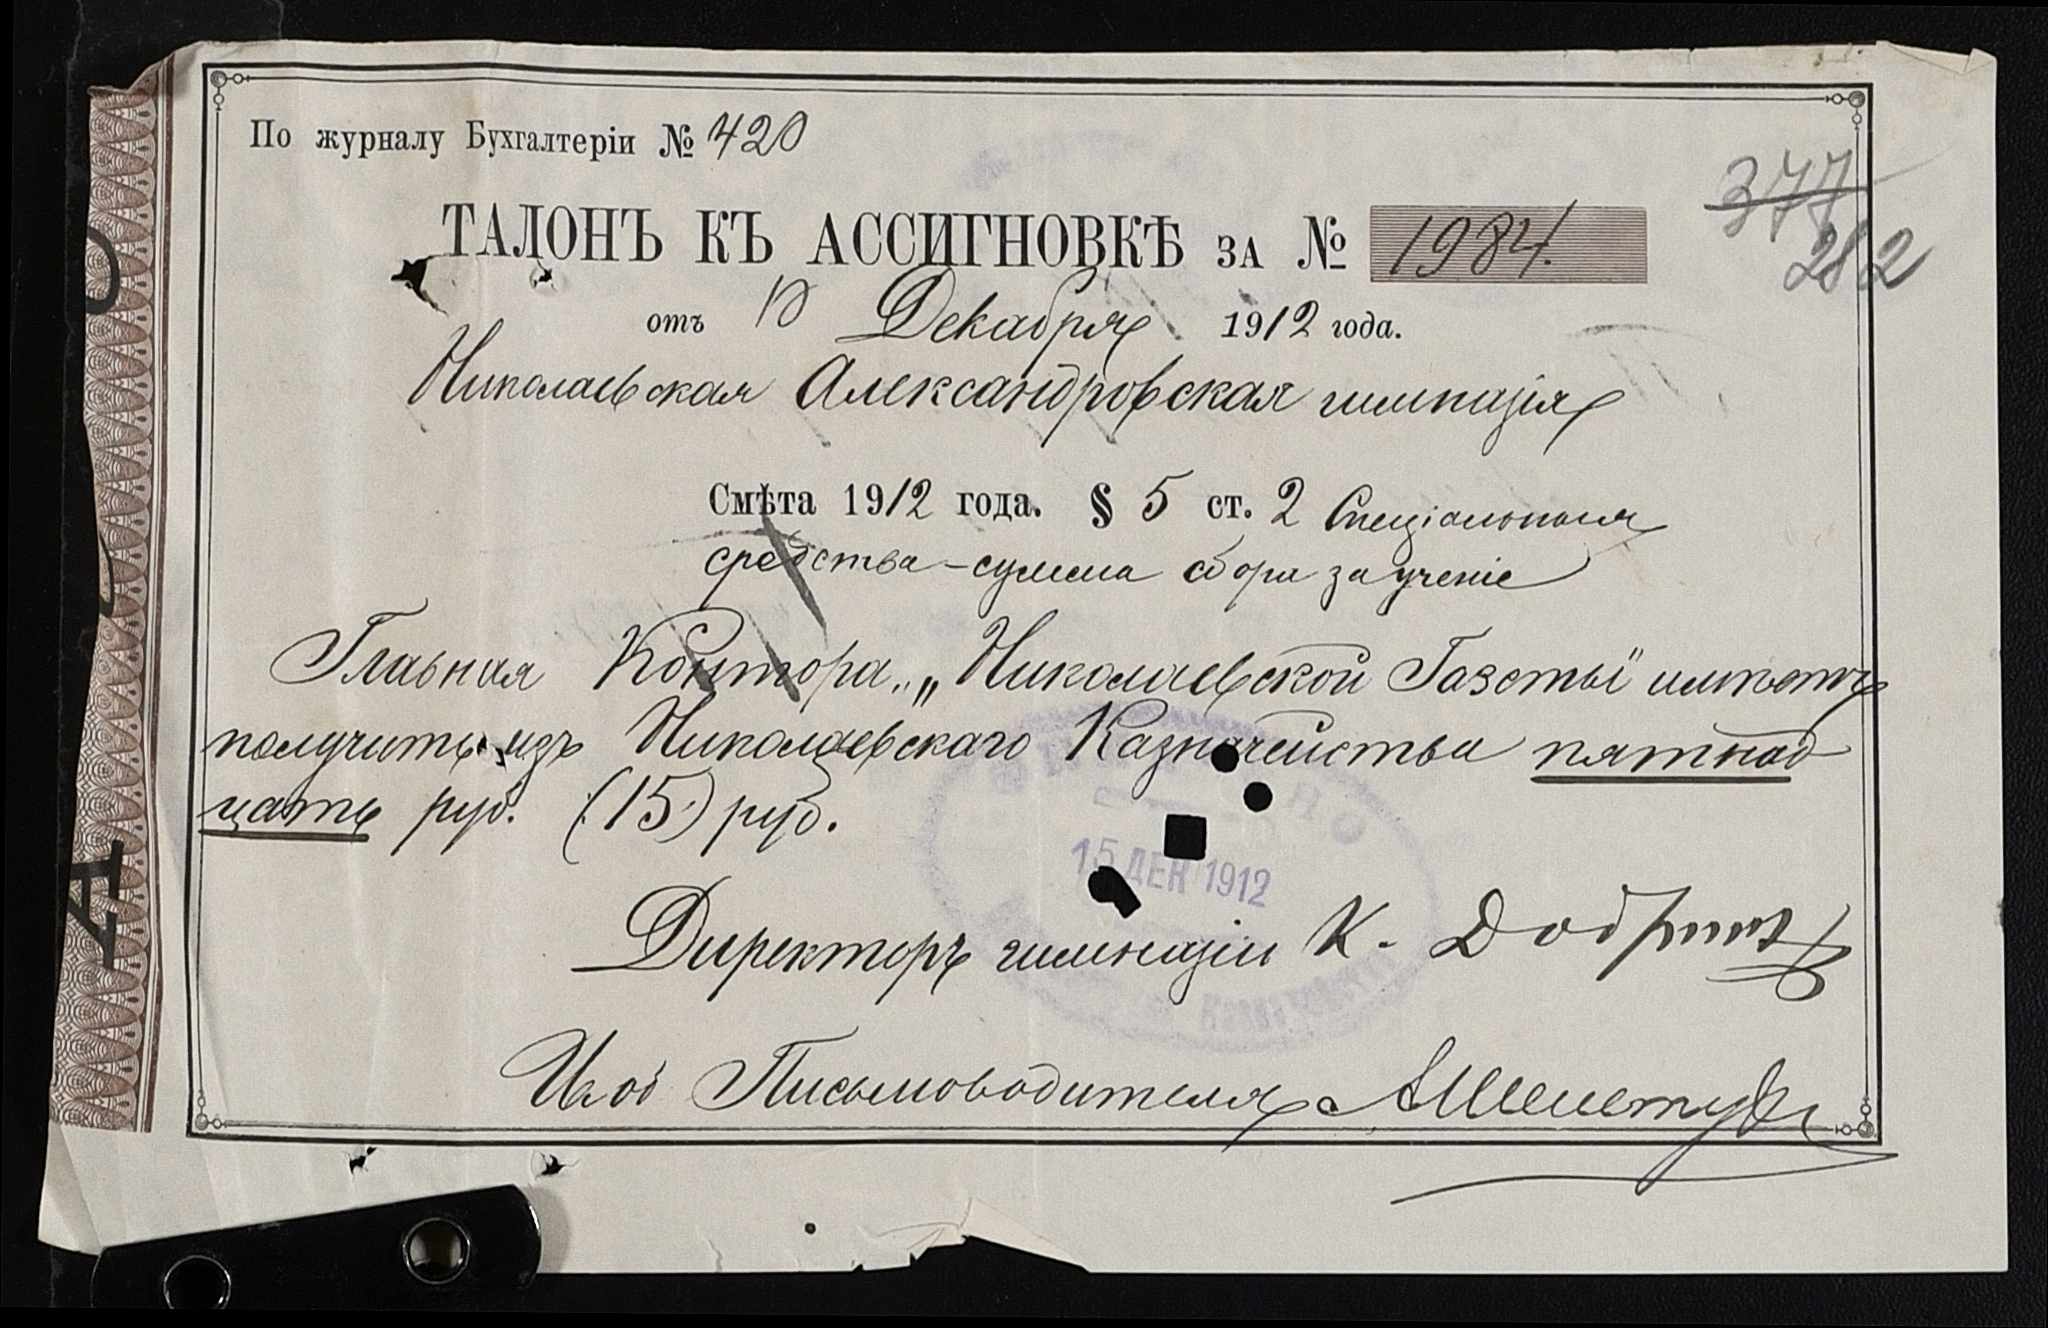 По журналу Бухгалтеріи № 420
377
282
ТАЛОНЪ КЪ АССИГНОВКѢ ЗА № 1984.
отъ 10 Декабря 1912 года.
Николаевская Александровская гимназія
Смѣта 1912 года. § 5 ст. 2 Спеціальныя
средства – сумма сбора за ученіе
Главная Контора „Николаевской Газеты" имѣетъ
получить изъ Николаевскаго Казначейства пятнад
цать руб. (15) руб.
15 ДЕК 1912
Директоръ гимназіи К.
И. об Письмоводителя
Казначейство